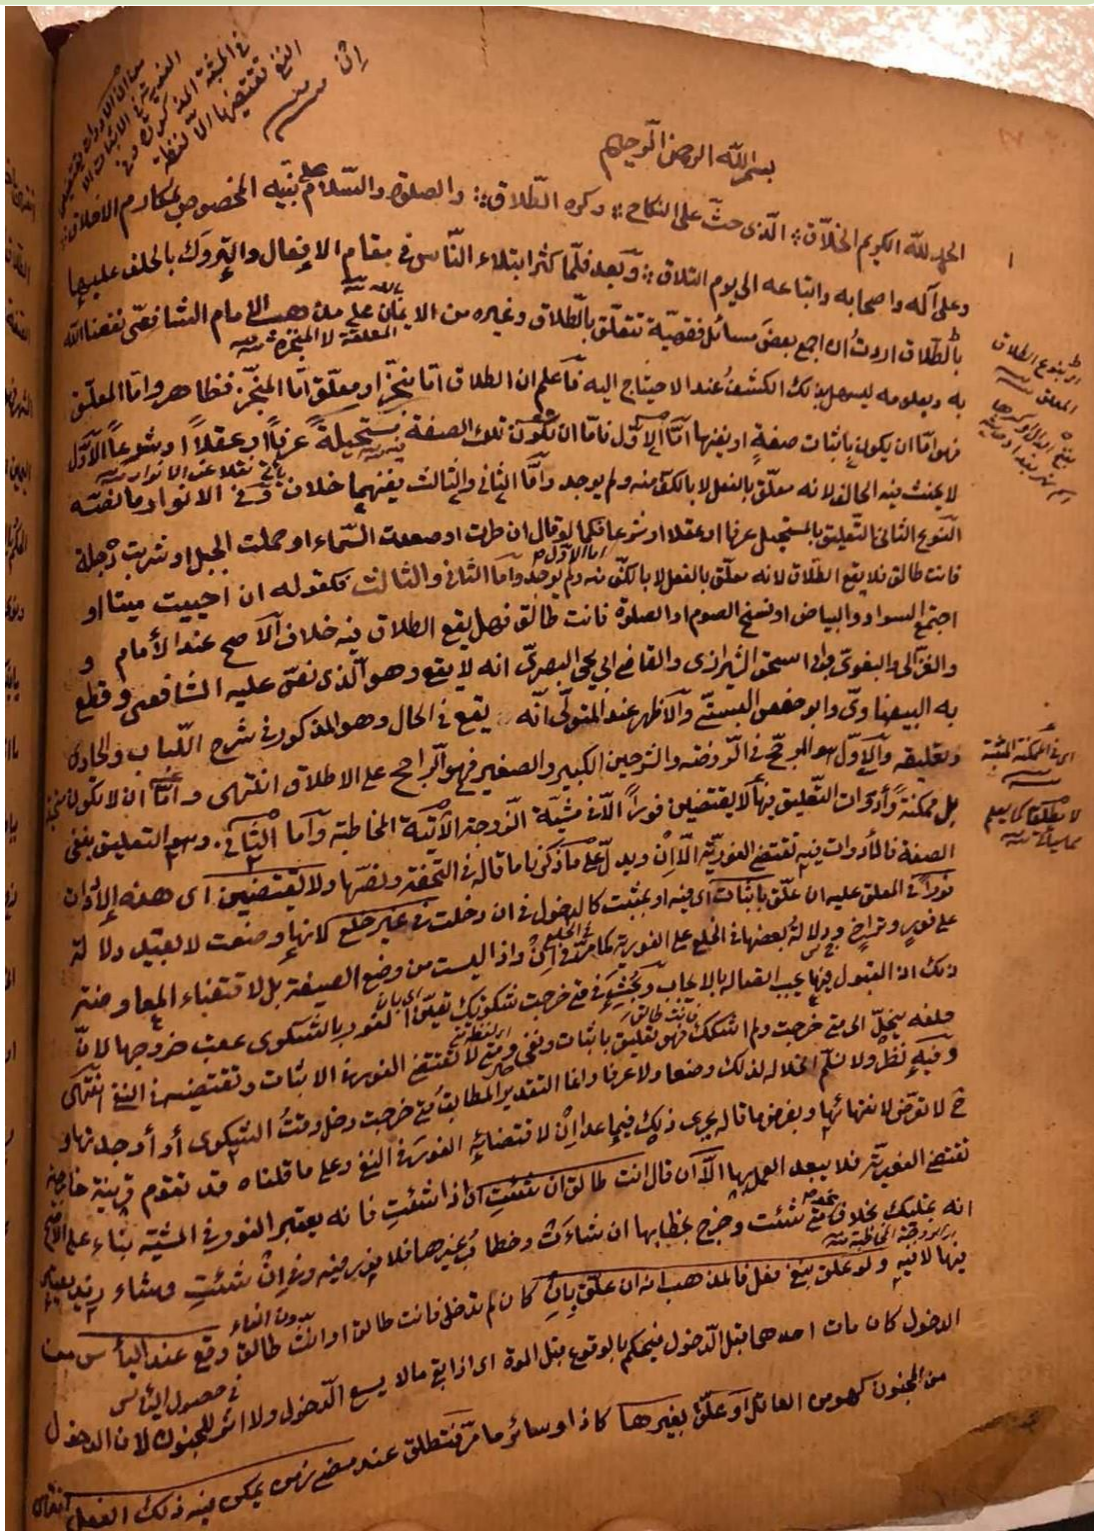 بسم الله الرحمن الرحيم
الحمد لله الكريم الخلاق الذى حث على النكاح وكره الطلاق والصلوة والسلام على نبيه المخصوص بمكارم الاخلاق
وعلى آله واصحابه واتباعه الى يوم التلاق وبعد فلما كثر ابتلاء الناس فى مقام الافعال والتروك بالحلف عليها
بالطلاق اردت ان اجمع بعض مسائل فقهية تتعلق بالطلاق وغيره من الايمان على مذهب الامام الشافعى نفعنا الله
به وبعلومه ليسهل بذلك الكشف عند الاحتياج اليه فاعلم ان الطلاق اما منجز او معلق اما المنجز فظاهر واما المعلق
فهو اما ان يكون باثبات صفة او بنفيها اما الاول فاما ان تكون تلك الصفة مستحيلة عرفا او عقلا او شرعا الاول
لا يحنث فيه الحالف لانه معلق بالفعل لا بالكف منه ولم يوجد واما الثانى والثالث ففيهما خلاف وفى الانوار ما نصه
النوع الثانى التعليق بالمستحيل عرفا او عقلا او شرعا فكما لو قال ان طرت او صعدت السماء او حملت الجبل او شربت دجلة
فانت طالق فلا يقع الطلاق لانه معلق بالفعل لا بالكف منه ولم يوجد واما الثانى والثالث فكقوله ان احييت ميتا او
اجتمع السواد والبياض او نسخ الصوم او الصلوة فانت طالق فهل يقع الطلاق فيه خلاف الاصح عند الامام و
والغزالى والبغوى وابى اسحق الشيرازى والقاضى ابى يحيى البصرى انه لا يقع وهو الذى نص عليه الشافعى وقطع
به البيضاوى وابو حفص البستى والاظهر عند المتولى انه يقع فى الحال وهو المذكور فى شرح اللباب والحاوى
وتعليقه والاول هو المرجح فى الروضة والشرحين الكبير والصغير فهو الراجح على الاطلاق انتهى واما ان لا تكون
بل ممكنة وادوات التعليق بها لا يقتضين فورا الا فى مشية الزوجة الآتية المخاطبة واما الثانى وهو التعليق بنفى
الصفة فالادوات فيه تقتضى الفورية الا ان ويدل على ما ذكرنا ما قاله فى التحفة ونصها ولا تقتضين اى هذه الادوات
فورا فى المعلق عليه ان علق باثبات اى فيه او بمثبت كالدخول فى ان دخلت فى غير خلع لانها وضعت لا بقيد دلالة
على فور وتراخ ودلالة بعضها فى الخلع على الفورية كما مر فى ان واذا ليست من وضع الصيغة بل لاقتضاء المعاوضة
ذلك اذ القبول فيها يجب اتصاله بالايجاب وبحث فى متى خرجت شكوتك تعين الفور بالشكوى عقب خروجها لان
حلفه ينحل الى متى خرجت ولم اشكك فهو تعليق باثبات ونفى ومتى لا تقتضى الفور فى الاثبات وتقتضيه فى النفى انتهى
وفيه نظر ولا نسلم انحلاله لذلك وضعا ولا عرفا وانما التقدير المطابق متى خرجت دخل وقت الشكوى او اوجدتها و
ح لا تعرض لانتهائها وبفرض ما قاله يجرى ذلك فيما عدا ان لاقتضائه الفور فى النفى وعلى ما قلناه قد تقوم قرينة خارجية
تقتضى الفورية فلا يبعد العمل بها الا ان قال انت طالق ان شئت او اذا شئت فانه يعتبر الفور فى المشية بناء على الاصح
انه تمليك بخلاف نحو متى شئت وخرج بخطابها ان شاءت وخطاب غيرها فلا فور فيه وفى ان شئت وشاء زيد يعتبر
فيها لا فيه ولو علق بنفى فعل فالمذهب انه ان علق بان كان لم تدخلى فانت طالق او انت طالق وقع عند اليأس من
الدخول كان مات احدهما قبل الدخول فيحكم بالوقوع قبل الموت اى اذا بقى ما لا يسع الدخول ولا اثر للجنون لان الدخول
من المجنون كهو من العاقل او علق بغيرها كاذا وسائر ما مر فتطلق عند مضى زمن يمكن فيه ذلك الفعل